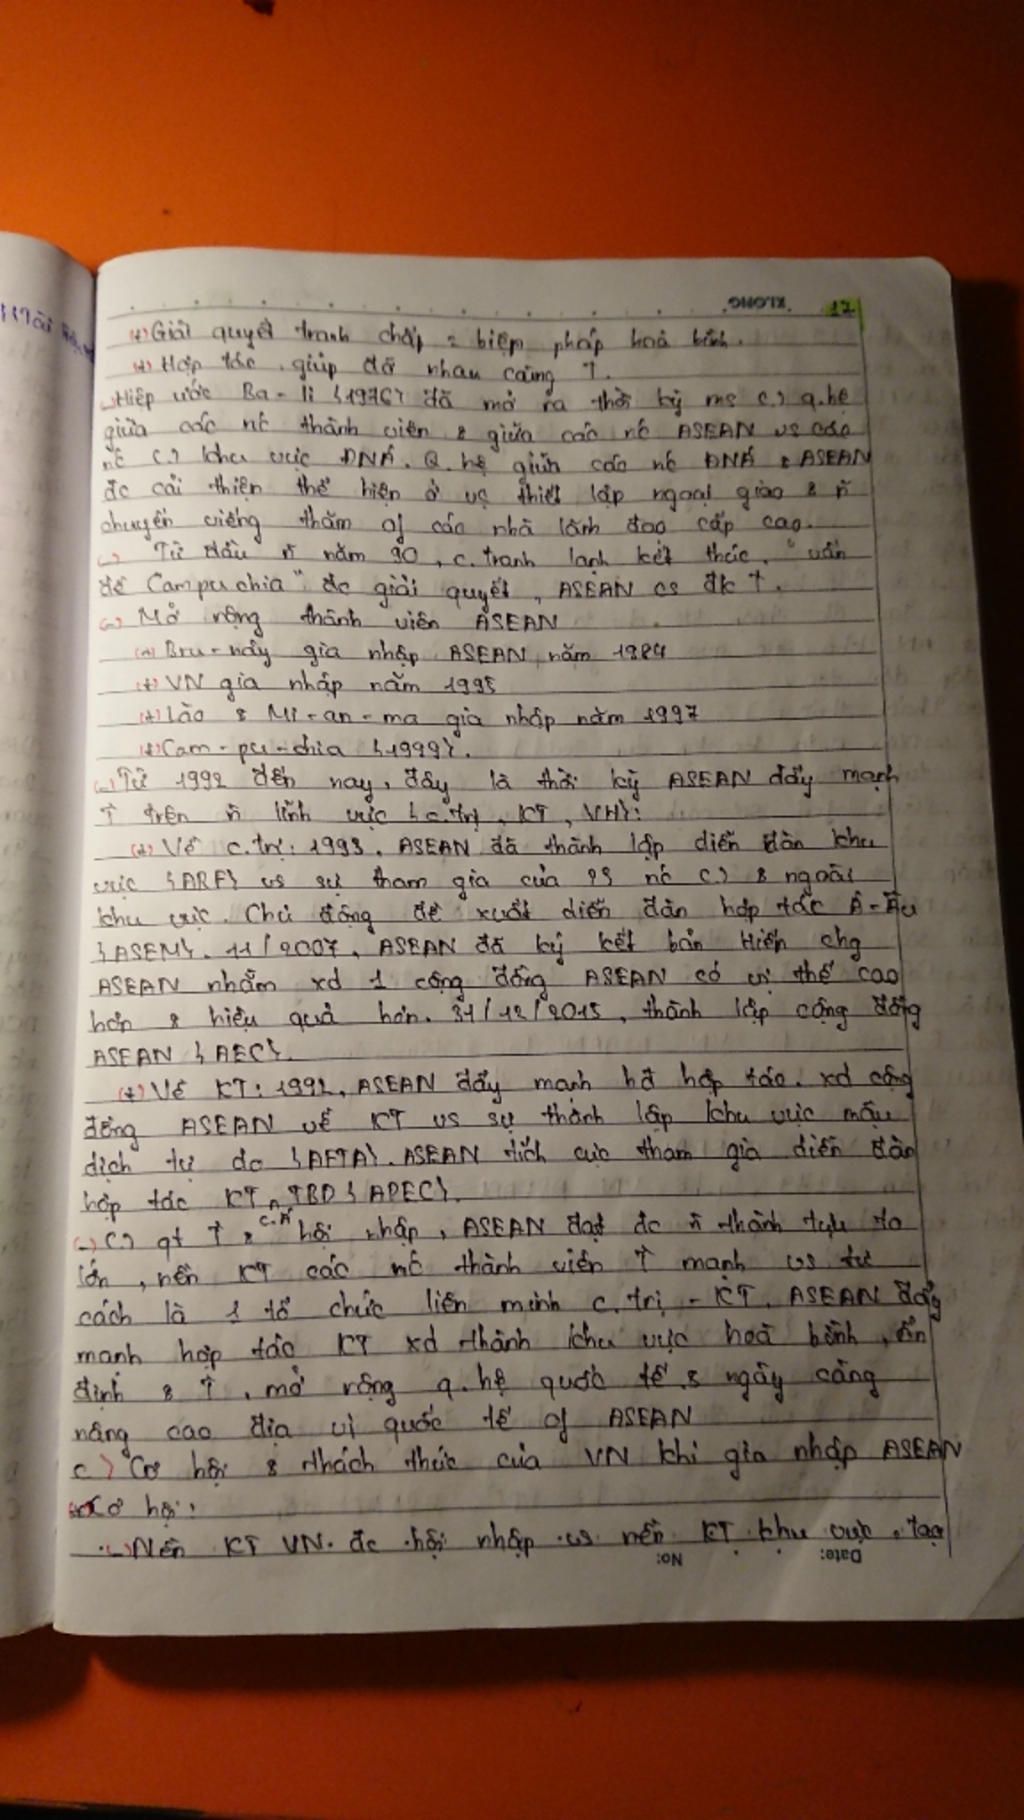 KLONG 17
(+) Giải quyết tranh chấp = biện pháp hoà bình.
(+) Hợp tác, giúp đỡ nhau cùng ↑.
(-) Hiệp ước Ba-li {1976} đã mở ra thời kỳ ms c.) q.hệ
giữa các nc thành viên & giữa các nc ASEAN vs các
nc c.) khu vực ĐNÁ. Q.hệ giữa các nc ĐNÁ & ASEAN
đc cải thiện thể hiện ở vc thiết lập ngoại giao & ñ
chuyến viếng thăm of các nhà lãnh đạo cấp cao.
(-) Từ đầu ñ năm 90, c.tranh lạnh kết thúc, "vấn
đề Campuchia" đc giải quyết, ASEAN cs đk ↑.
(-) Mở rộng thành viên ASEAN
(+) Bru-nây gia nhập ASEAN năm 1984
(+) VN gia nhập năm 1995
(+) Lào & Mi-an-ma gia nhập năm 1997
(+) Cam-pu-chia {1999}.
(-) Từ 1992 đến nay, đây là thời kỳ ASEAN đẩy mạnh
↑ trên ñ lĩnh vực {c.trị, KT, VH}:
(+) Về c.trị: 1993, ASEAN đã thành lập diễn đàn khu
vực {ARF} vs sự tham gia của 23 nc c.) & ngoài
khu vực. Chủ động đề xuất diễn đàn hợp tác Á-Âu
{ASEM}. 11/2007, ASEAN đã ký kết bản Hiến chg
ASEAN nhằm xd 1 cộng đồng ASEAN có vị thế cao
hơn & hiệu quả hơn. 31/12/2015, thành lập cộng đồng
ASEAN {AEC}.
(+) Về KT: 1992, ASEAN đẩy mạnh hđ hợp tác, xd cộng
đồng ASEAN về KT vs sự thành lập khu vực mậu
dịch tự do {AFTA}. ASEAN tích cực tham gia diễn đàn
hợp tác KT TBD {APEC}.
(-) C.) qt ↑ & hội nhập, ASEAN đạt đc ñ thành tựu to
lớn, nền KT các nc thành viên ↑ mạnh vs tư
cách là 1 tổ chức liên minh c.trị - KT. ASEAN đẩy
mạnh hợp tác KT xd thành khu vực hoà bình, ổn
định & ↑, mở rộng q.hệ quốc tế & ngày càng
nâng cao địa vị quốc tế of ASEAN
c) Cơ hội & thách thức của VN khi gia nhập ASEAN
Cơ hội:
(-) Nền KT VN đc hội nhập vs nền KT khu vực, tạo
No: Date: